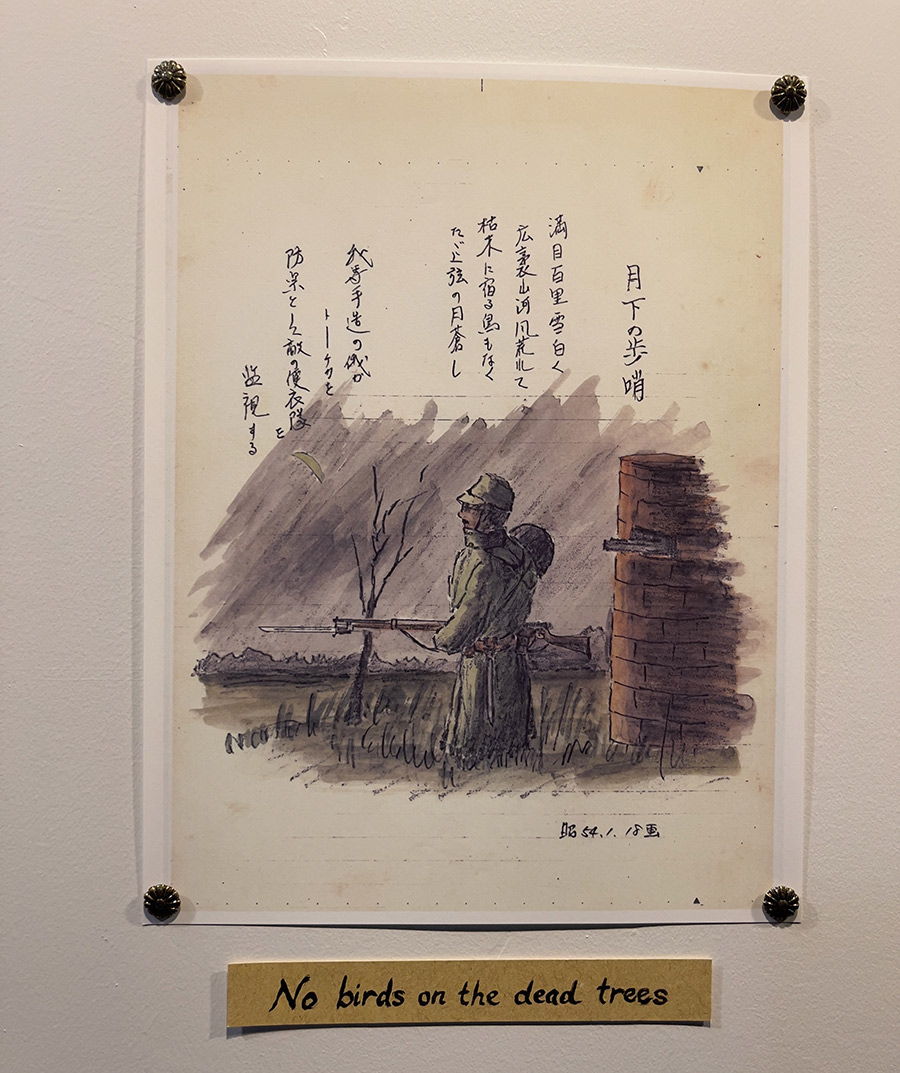 月下の歩哨
満目百里雪白く
広袤山河風荒れて
枯木に宿る鳥もなく
たゞ上弦の月蒼し
我等手造の俄か
トーチカを
防塁とし敵の便衣隊を
監視する
昭54.1.18画
No birds on the dead trees